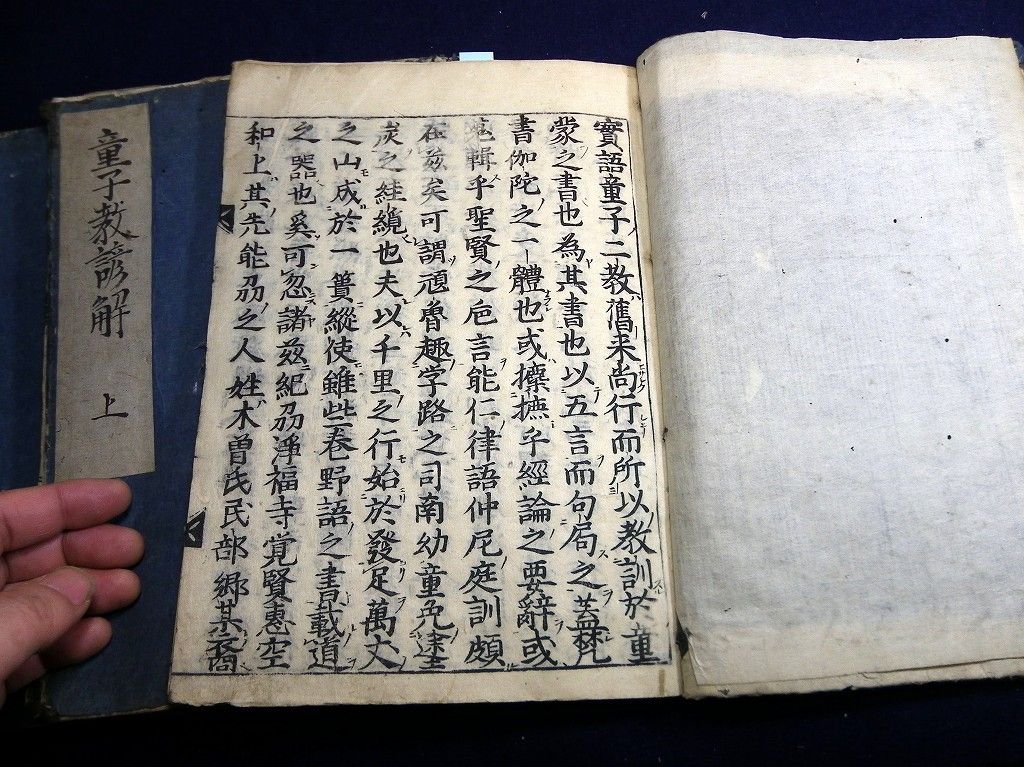 實語童子二教舊来尚行而所以教訓於童
蒙之書也為其書也以五言而句局之蓋梵
書伽陀之一體也或擽摭乎經論之要辭或
輯乎聖賢之巵言能仁律語仲尼庭訓頗
在茲矣可謂頑魯趣学路之司南幼童免塗
炭之絓纜也夫以千里之行始於發足萬丈
之山成於一簣縱使雖些巻野語之書載道
之器也奚可忽諸茲紀刕淨福寺覚賢惠空
和上其先能刕之人姓木曽氏民部郷某裔
童子教諺解
上